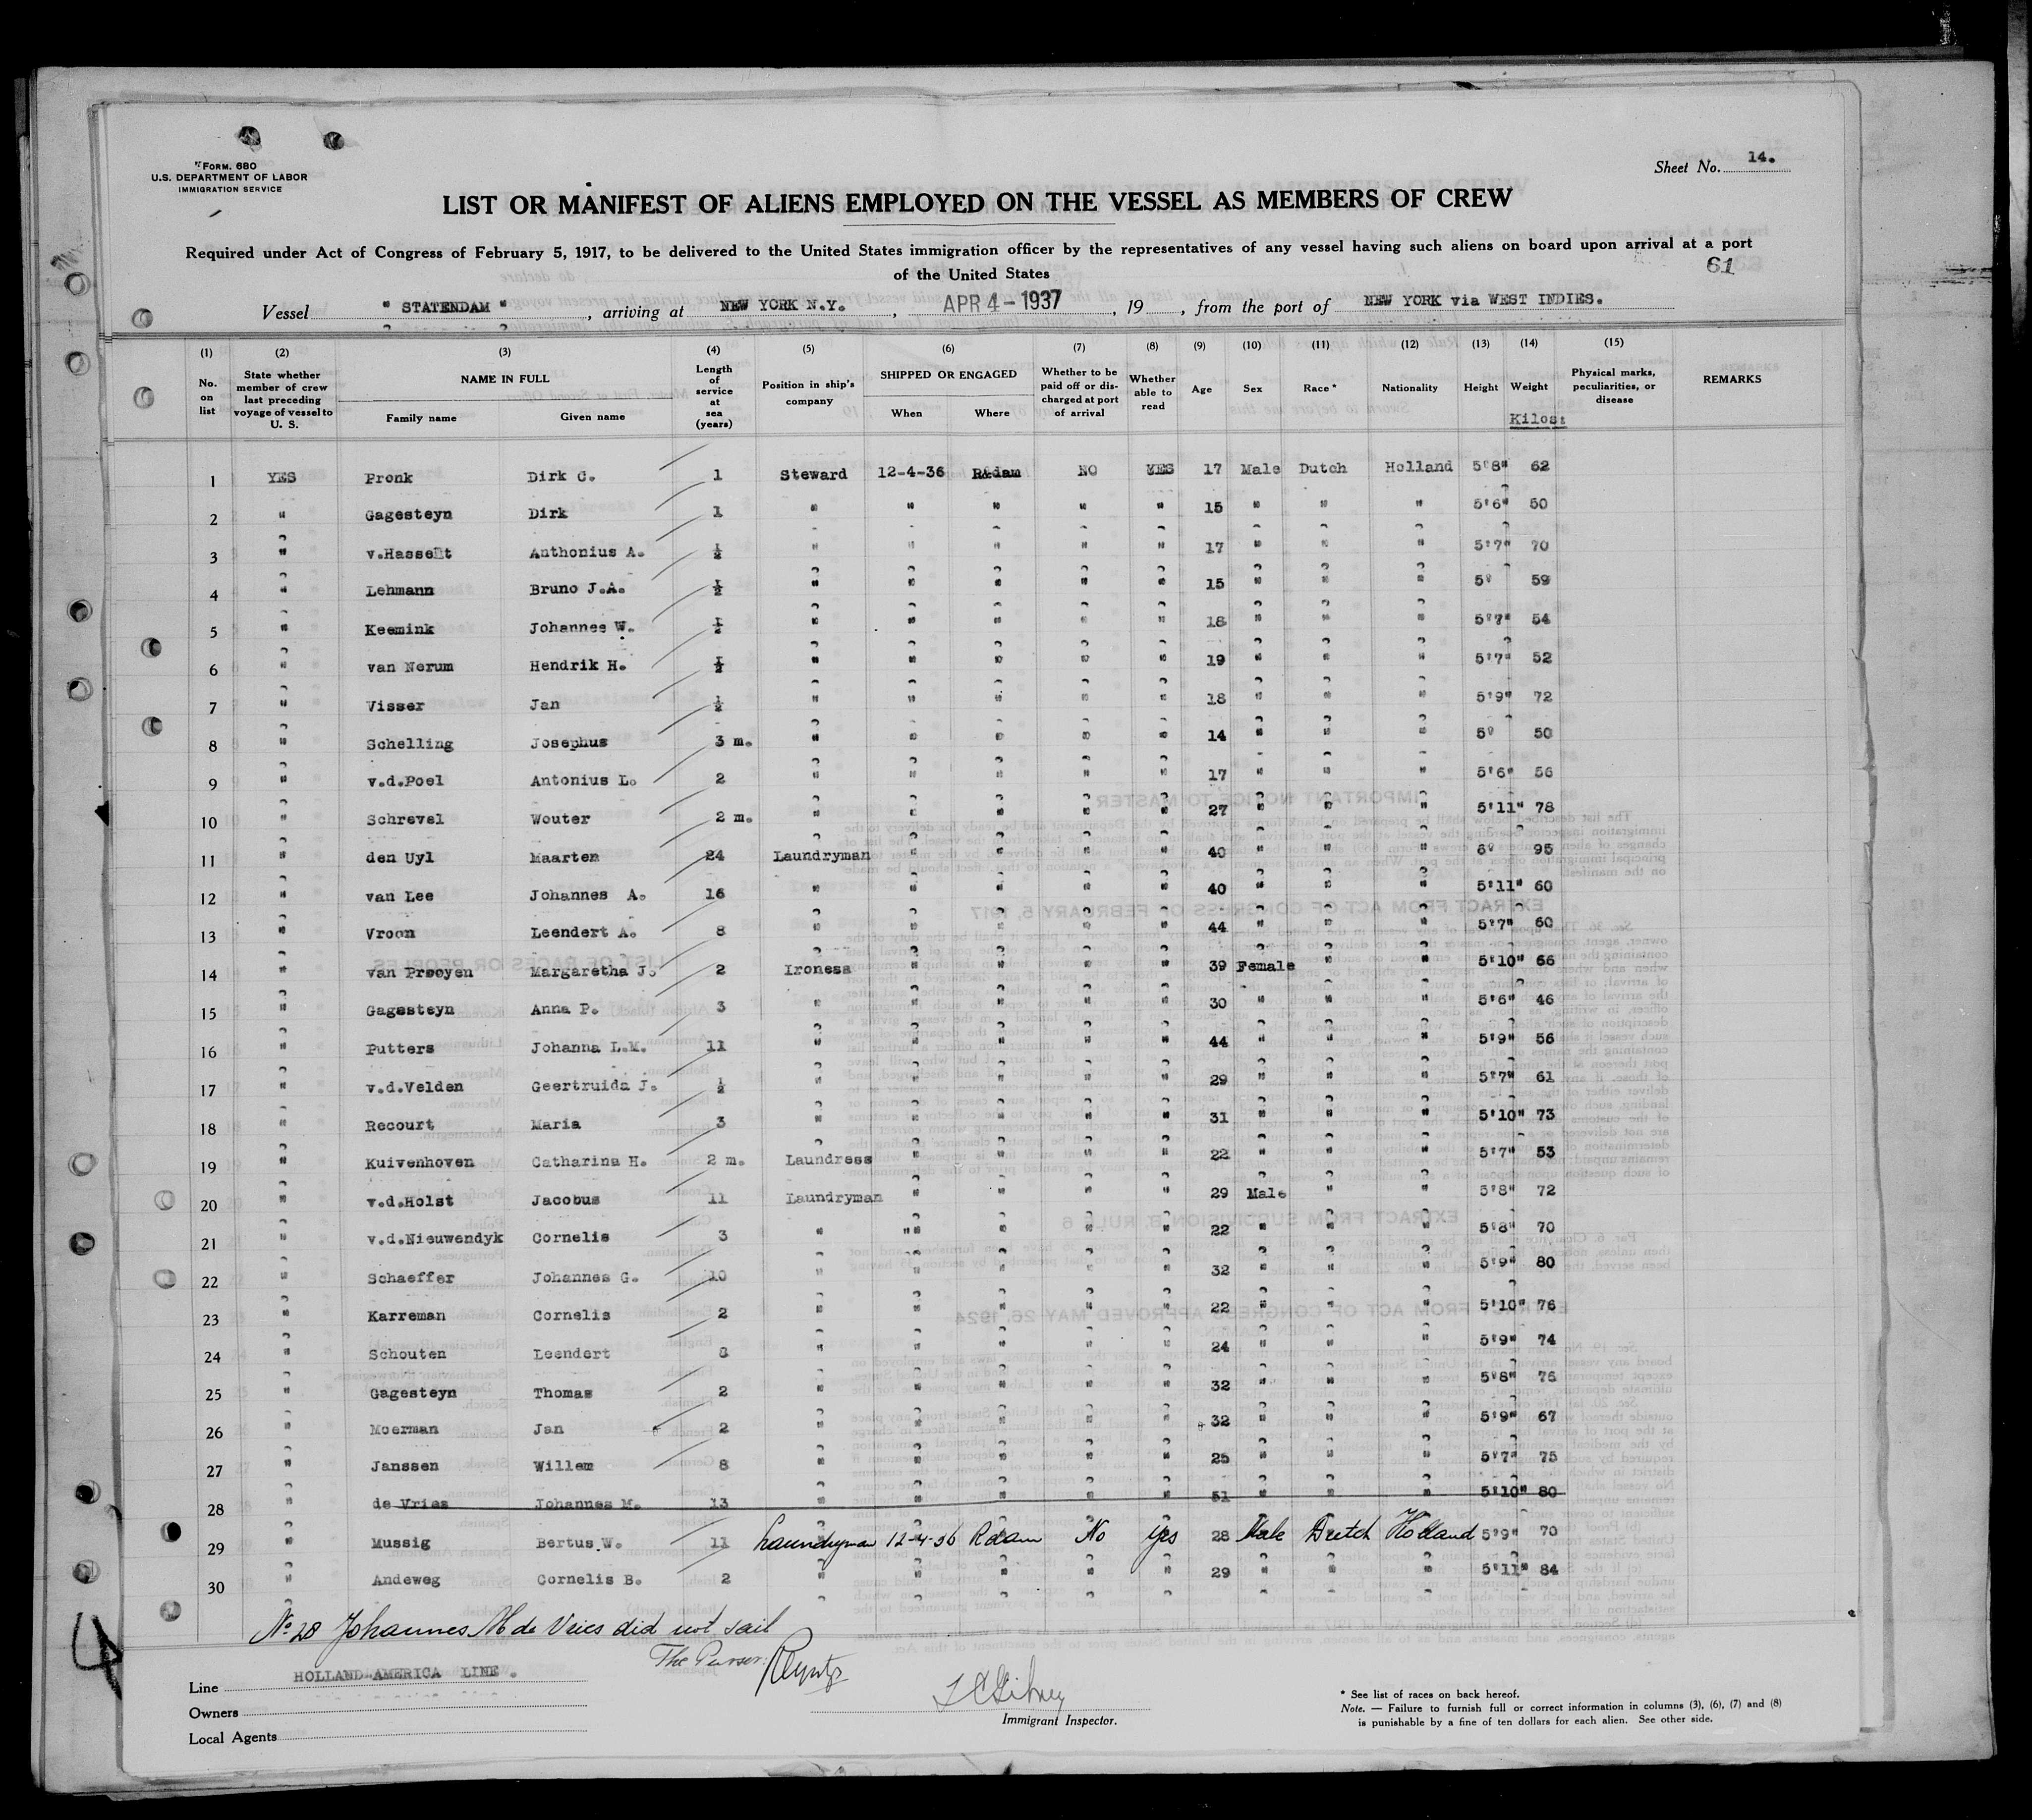 Form 680
U.S. DEPARTMENT OF LABOR
IMMIGRATION SERVICE
Sheet No. 14.
LIST OR MANIFEST OF ALIENS EMPLOYED ON THE VESSEL AS MEMBERS OF CREW
Required under Act of Congress of February 5, 1917, to be delivered to the United States immigration officer by the representatives of any vessel having such aliens on board upon arrival at a port
of the United States
61
Vessel " STATENDAM " , arriving at NEW YORK N.Y. , APR 4 - 1937 , 19 , from the port of NEW YORK via WEST INDIES.
(1) (2) (3) (4) (5) (6) (7) (8) (9) (10) (11) (12) (13) (14) (15)
No. on list State whether member of crew last preceding voyage of vessel to U. S. NAME IN FULL Family name Given name Length of service at sea (years) Position in ship's company SHIPPED OR ENGAGED When Where Whether to be paid off or discharged at port of arrival Whether able to read Age Sex Race* Nationality Height Weight Kilos: Physical marks, peculiarities, or disease REMARKS
1 YES Pronk Dirk C. 1 Steward 12-4-36 Rdam NO YES 17 Male Dutch Holland 5'8" 62
2 " Gagesteyn Dirk 1 " " " " " 15 " " " 5'6" 50
3 " v.Hasselt Anthonius A. ½ " " " " " 17 " " " 5'7" 70
4 " Lehmann Bruno J.A. ½ " " " " " 15 " " " 5' 59
5 " Keemink Johannes W. ½ " " " " " 18 " " " 5'7" 54
6 " van Nerum Hendrik H. ½ " " " " " 19 " " " 5'7" 52
7 " Visser Jan ½ " " " " " 18 " " " 5'9" 72
8 " Schelling Josephus 3 m. " " " " " 14 " " " 5' 50
9 " v.d.Poel Antonius L. 2 " " " " " 17 " " " 5'6" 56
10 " Schrevel Wouter 2 m. " " " " " 27 " " " 5'11" 78
11 " den Uyl Maarten 24 Laundryman " " " " 40 " " " 6' 95
12 " van Lee Johannes A. 16 " " " " " 40 " " " 5'11" 60
13 " Vroon Leendert A. 8 " " " " " 44 " " " 5'7" 60
14 " van Prooyen Margaretha J. 2 Ironess " " " " 39 Female " " 5'10" 66
15 " Gagesteyn Anna P. 3 " " " " " 30 " " " 5'6" 46
16 " Putters Johanna L.M. 11 " " " " " 44 " " " 5'9" 56
17 " v.d.Velden Geertruida J. ½ " " " " " 29 " " " 5'7" 61
18 " Recourt Maria 3 " " " " " 31 " " " 5'10" 73
19 " Kuivenhoven Catharina H. 2 m. Laundress " " " " 22 " " " 5'7" 53
20 " v.d.Holst Jacobus 11 Laundryman " " " " 29 Male " " 5'8" 72
21 " v.d.Nieuwendyk Cornelis 3 " " " " " 22 " " " 5'8" 70
22 " Schaeffer Johannes G. 10 " " " " " 32 " " " 5'9" 80
23 " Karreman Cornelis 2 " " " " " 22 " " " 5'10" 76
24 " Schouten Leendert " " " " " 24 " " " 5'9" 74
25 " Gagesteyn Thomas 2 " " " " " 32 " " " 5'8" 76
26 " Moerman Jan 2 " " " " " 32 " " " 5'9" 67
27 " Janssen Willem 8 " " " " " 25 " " " 5'7" 75
28 " de Vries Johannes M. 13 " " " " " 51 " " " 5'10" 80
29 " Mussig Bertus W. 11 Laundryman 12-4-36 Rdam No yes 28 Male Dutch Holland 5'9" 70
30 " Andeweg Cornelis B. 2 " " " " " 29 " " " 5'11" 84
No 28 Johannes M de Vries did not sail
The Purser:
Line HOLLAND-AMERICA LINE .
Owners
Local Agents
Immigrant Inspector.
* See list of races on back hereof.
Note. — Failure to furnish full or correct information in columns (3), (6), (7) and (8)
is punishable by a fine of ten dollars for each alien. See other side.